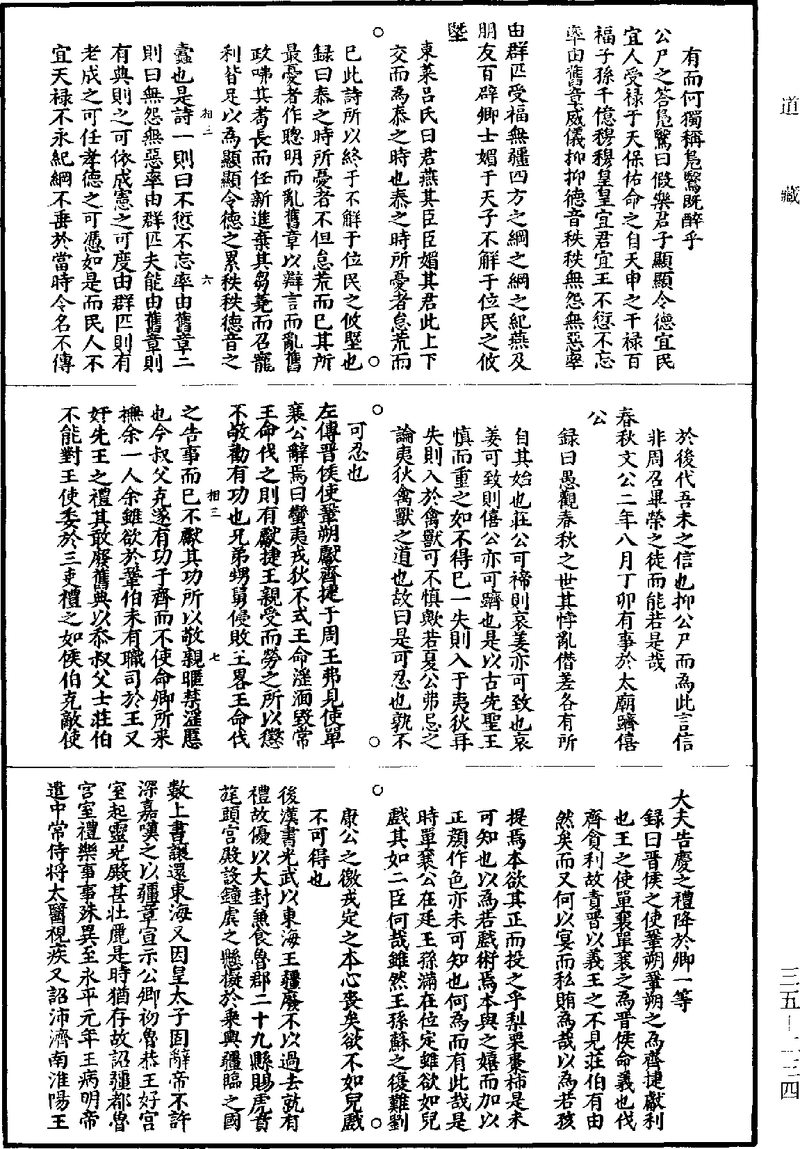 道藏
有而何獨稱鳧鷖既醉乎
公尸之答鳧鷖曰假樂君子顯顯令德宜民
宜人受祿于天保佑命之自天申之干祿百
福子孫千億穆穆皇皇宜君宜王不愆不忘
率由舊章威儀抑抑德音秩秩無怨無惡率
由群匹受福無疆四方之綱之綱之紀燕及
朋友百辟卿士媚于天子不解于位民之攸
墍
東萊呂氏曰君燕其臣臣媚其君此上下
交而為泰之時也泰之時所憂者怠荒而
已此詩所以終于不解于位民之攸墍也
錄曰泰之時所憂者不但怠荒而已其所
最憂者作聰明而亂舊章以辯言而亂舊
政咈其耇長而任新進棄其芻蕘而召寵
利皆足以為顯顯令德之累秩秩德音之
相三 六
蠹也是詩一則曰不愆不忘率由舊章二
則曰無怨無惡率由群匹夫能由舊章則
有典則之可依成憲之可度由群匹則有
老成之可任孝德之可憑如是而民人不
宜天祿不永紀綱不垂於當時令名不傳
於後代吾未之信也抑公尸而為此言信
非周召畢榮之徒而能若是哉
春秋文公二年八月丁卯有事於太廟躋僖
公
錄曰愚觀春秋之世其悖亂僭差各有所
自其始也莊公可禘則哀姜亦可致也哀
姜可致則僖公亦可躋也是以古先聖王
慎而重之如不得已一失則入于夷狄再
失則入於禽獸可不慎歟若夏公弗忌之
論夷狄禽獸之道也故曰是可忍也孰不
可忍也
左傳晉侯使鞏朔獻齊捷于周王弗見使單
襄公辭焉曰蠻夷戎狄不式王命淫湎毀常
王命伐之則有獻捷王親受而勞之所以懲
不敬勸有功也兄弟甥舅侵敗王畧王命伐
相三 七
之告事而已不獻其功所以敬親暱禁淫慝
也今叔父克遂有功于齊而不使命卿所来
撫余一人余雖欲於鞏伯未有職司於王又
奸先王之禮其敢廢舊典以忝叔父士莊伯
不能對王使委於三吏禮之如侯伯克敵使
大夫告慶之禮降於卿一等
錄曰晉侯之使鞏朔鞏朔之為齊捷獻利
也王之使單襄單襄之為晉侯命義也伐
齊貪利故責晉以義王之不見莊伯有由
然矣而又何以宴而私賄為哉以為若孩
提焉本欲其正而投之乎梨栗棗柿是未
可知也以為若戲術焉本與之嬉而加以
正顏作色亦未可知也何為而有此哉是
時單襄公在廷王孫滿在位定雖欲如兒
戲其如二臣何哉雖然王孫蘇之復難劉
康公之徼戎定之本心喪矣欲不如兒戲
不可得也
後漢書光武以東海王彊廢不以過去就有
禮故優以大封兼食魯郡二十九縣賜虎賁
旄頭宮殿設鐘虡之懸擬於乘輿彊臨之國
數上書讓還東海又因皇太子固辭帝不許
深嘉嘆之以彊章宣示公卿初魯恭王好宮
室起靈光殿甚壯麗是時猶存故詔彊都魯
宮室禮樂事事殊異至永平元年王病明帝
遣中常侍將太醫視疾又詔沛濟南淮陽王
三五—二三四